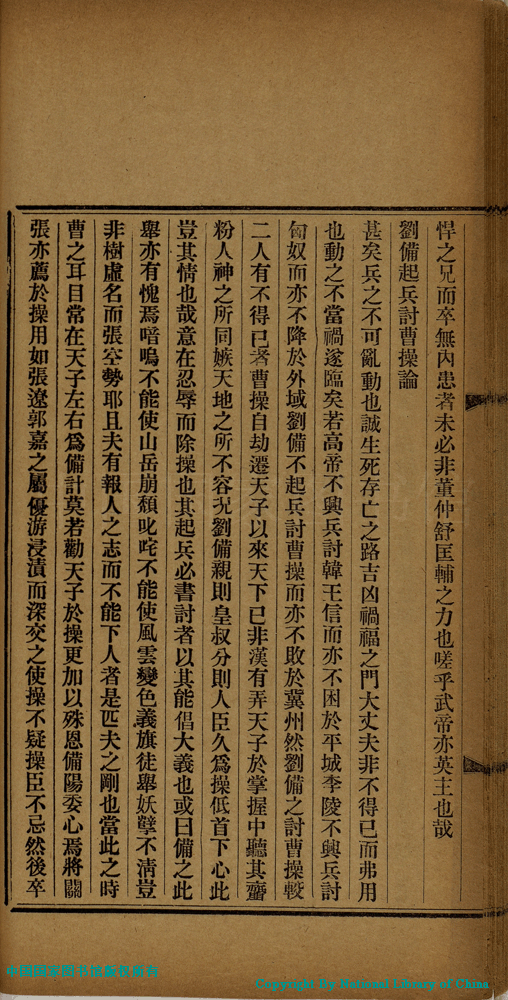 悍之兄而卒無內患者未必非董仲舒匡輔之力也嗟乎武帝亦英主也哉
劉備起兵討曹操論
甚矣兵之不可亂動也誠生死存亡之路吉凶禍福之門大丈夫非不得已而弗用
也動之不當禍遂臨矣若高帝不興兵討韓王信而亦不困於平城李陵不興兵討
匈奴而亦不降於外域劉備不起兵討曹操而亦不敗於冀州然劉備之討曹操較
二人有不得已者曹操自劫遷天子以來天下已非漢有弄天子於掌握中聽其虀
粉人神之所同嫉天地之所不容況劉備親則皇叔分則人臣久爲操低首下心此
豈其情也哉意在忍辱而除操也其起兵必書討者以其能倡大義也或曰備之此
舉亦有愧焉喑嗚不能使山岳崩頹叱咤不能使風雲變色義旗徒舉妖孽不清豈
非樹虛名而張空勢耶且夫有報人之志而不能下人者是匹夫之剛也當此之時
曹之耳目常在天子左右爲備計莫若勸天子於操更加以殊恩備陽委心焉將關
張亦薦於操用如張遼郭嘉之屬優游浸漬而深交之使操不疑操臣不忌然後卒
中国国家图书馆版权所有
Copyright by National Library of China